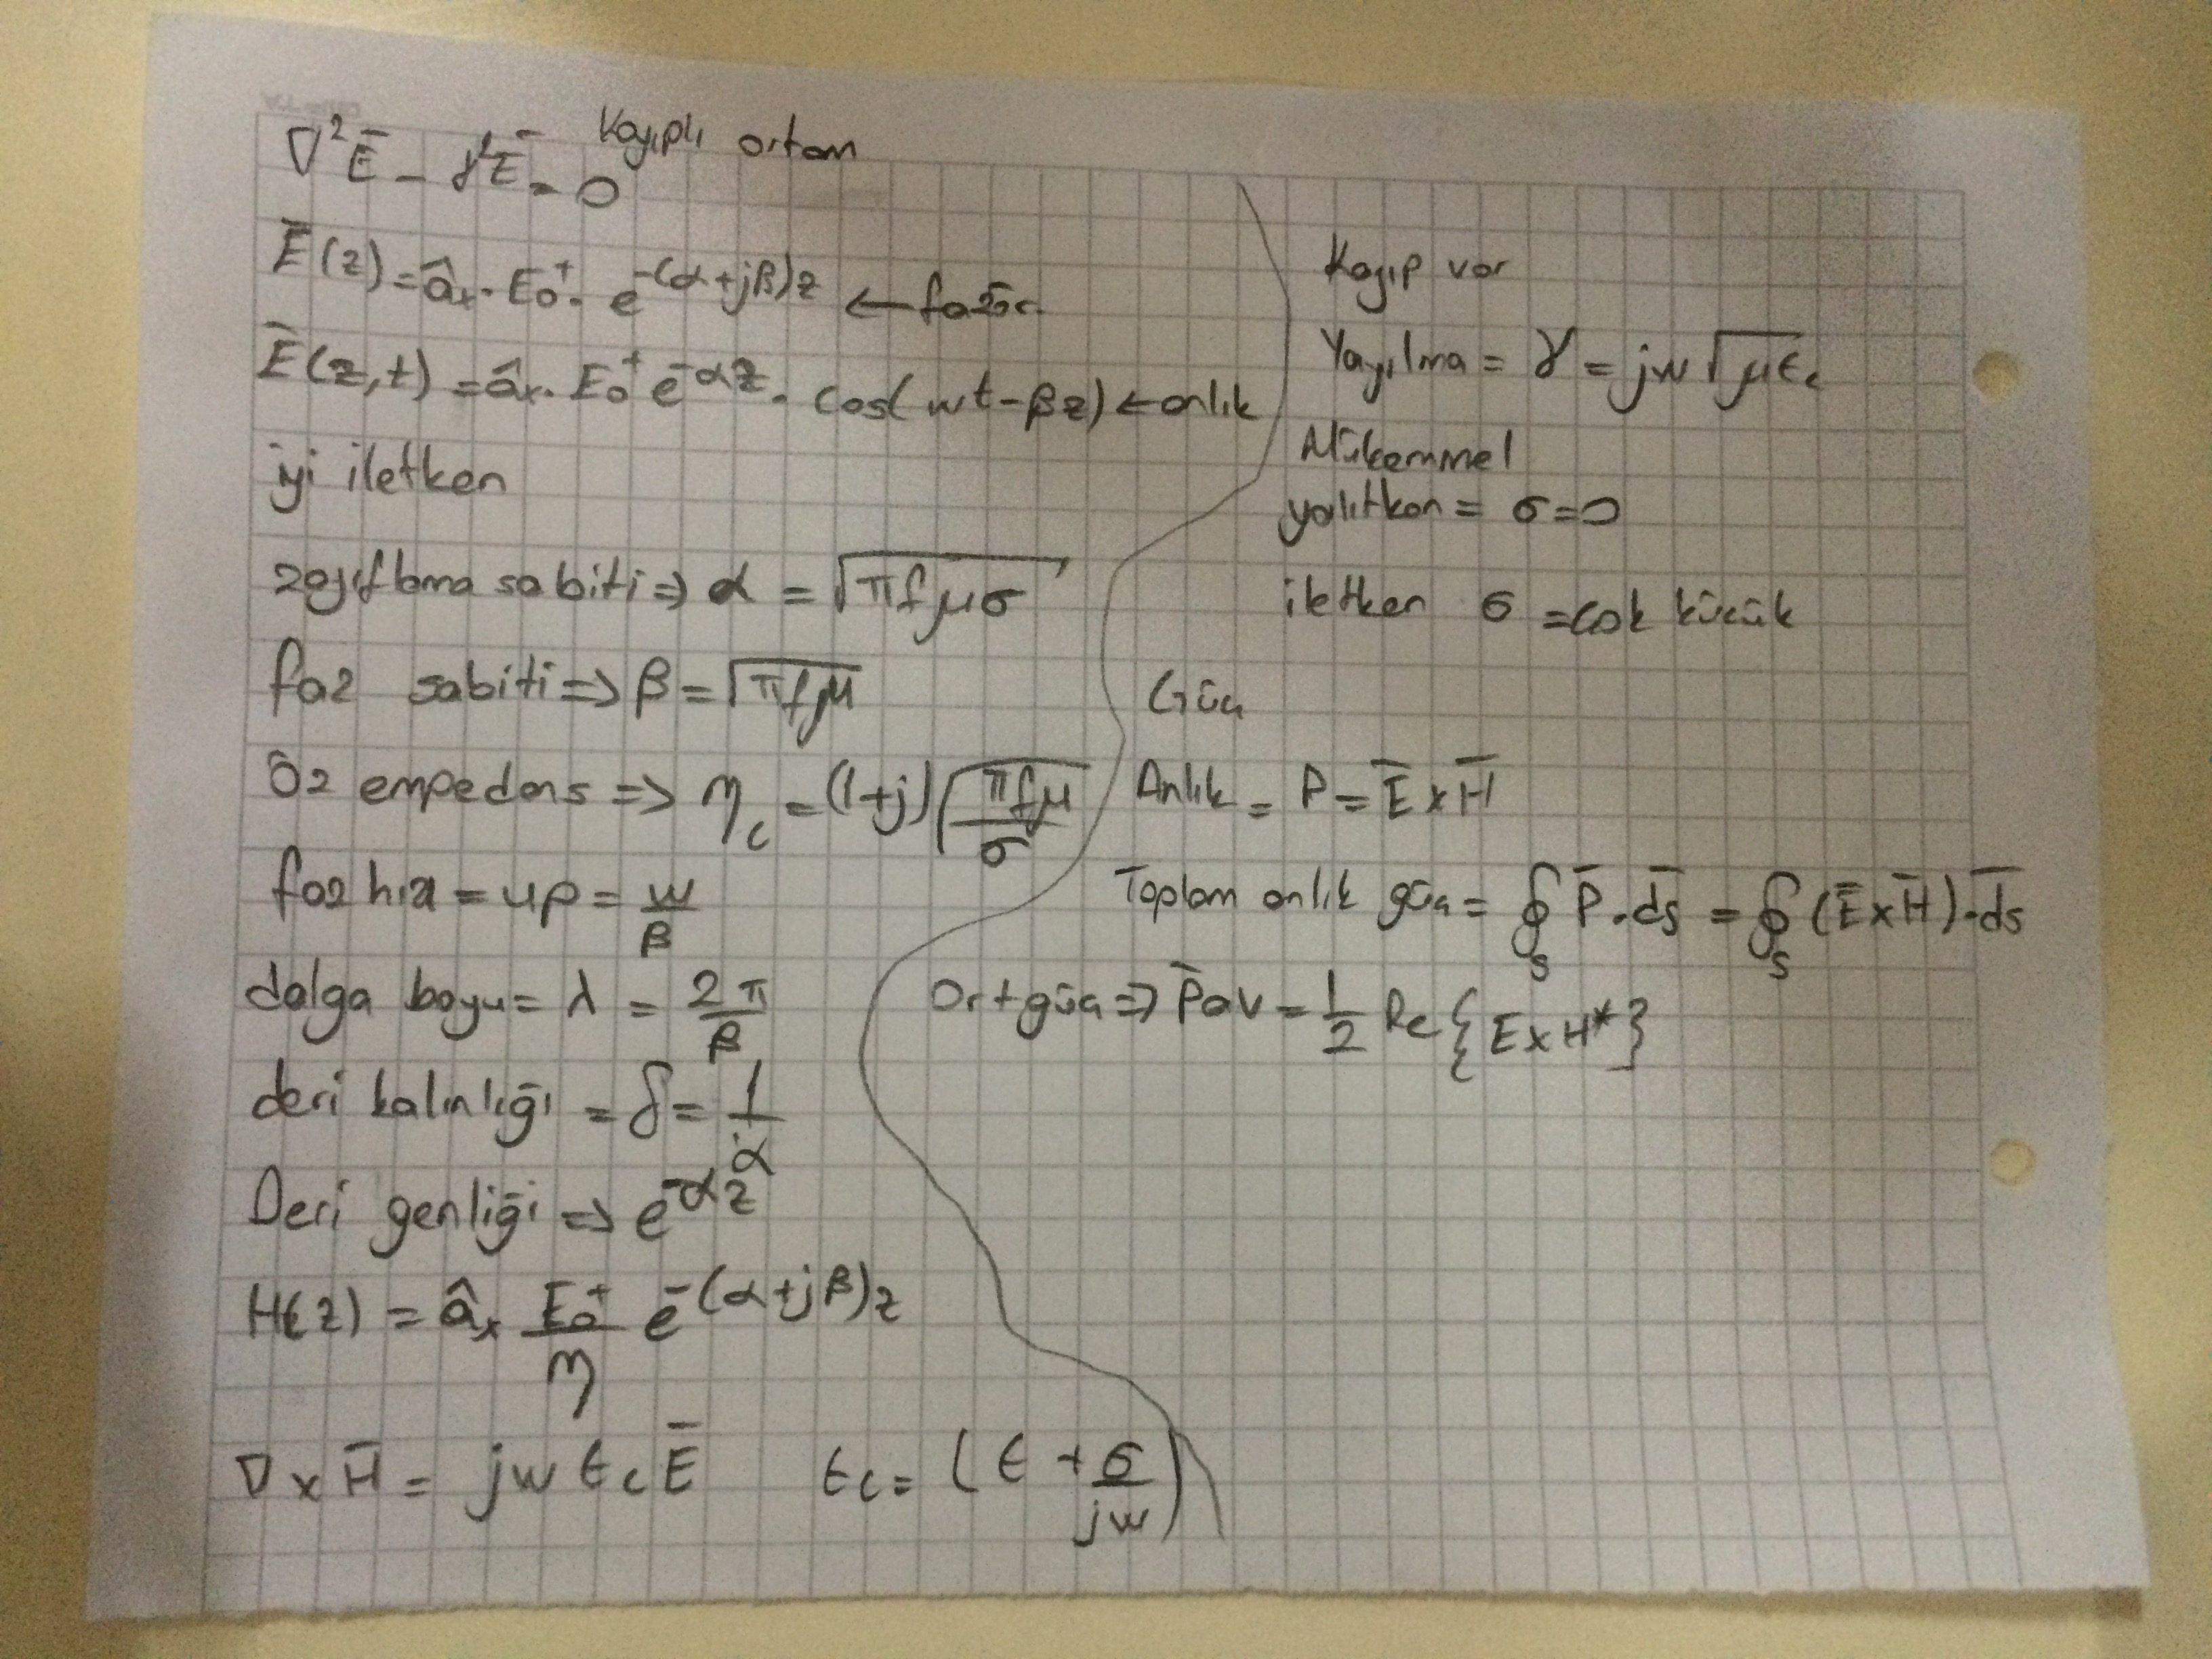 Kayıplı ortam
∇²Ē - γ²Ē = 0
Ē(z) = âx . E0⁺ . e^-(α+jβ)z ← fazör
Ē(z,t) = âx . E0⁺ e^-αz . cos(wt-βz) ← anlık
iyi iletken
zayıflama sabiti => α = √(πfμσ)
faz sabiti => β = √(πfμ)
Öz empedans => ηc = (1+j) √(πfμ/σ)
faz hızı = up = w/β
dalga boyu = λ = 2π/β
deri kalınlığı = δ = 1/α
Deri genliği => e^-αz
H(z) = âx E0⁺/η e^-(α+jβ)z
∇ x H̄ = jw εc Ē εc = (ε + σ/jw)
Kayıp var
Yayılma = γ = jw √(μεc)
Mükemmel
yalıtkan = σ=0
iletken σ = çok küçük
Güç
Anlık = P = Ē x H̄
Toplam anlık güç = ∮s P̄ . d̄s = ∮s (Ē x H̄) . d̄s
Ort güç => P̄av = 1/2 Re{E x H*}